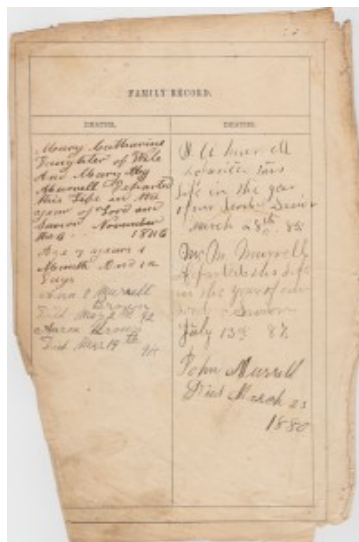 FAMILY RECORD.
DEATHS.
Mary Catharine
Daughter of
And Mary
Murrell Departed
this Life in the
year of Lord and
Savior November
the 6 1846
Age 7 years 1
Month And 12
Days
Murrell
Brown
Died 92
Aaron Brown
Died 19th
DEATHS.
this
Life in the year
of our Lord
March 28th 85
Mr. M. Murrell
this Life
in the year of our
Lord & Savior
July 13th 87
John Murrell
Died March 23
1880